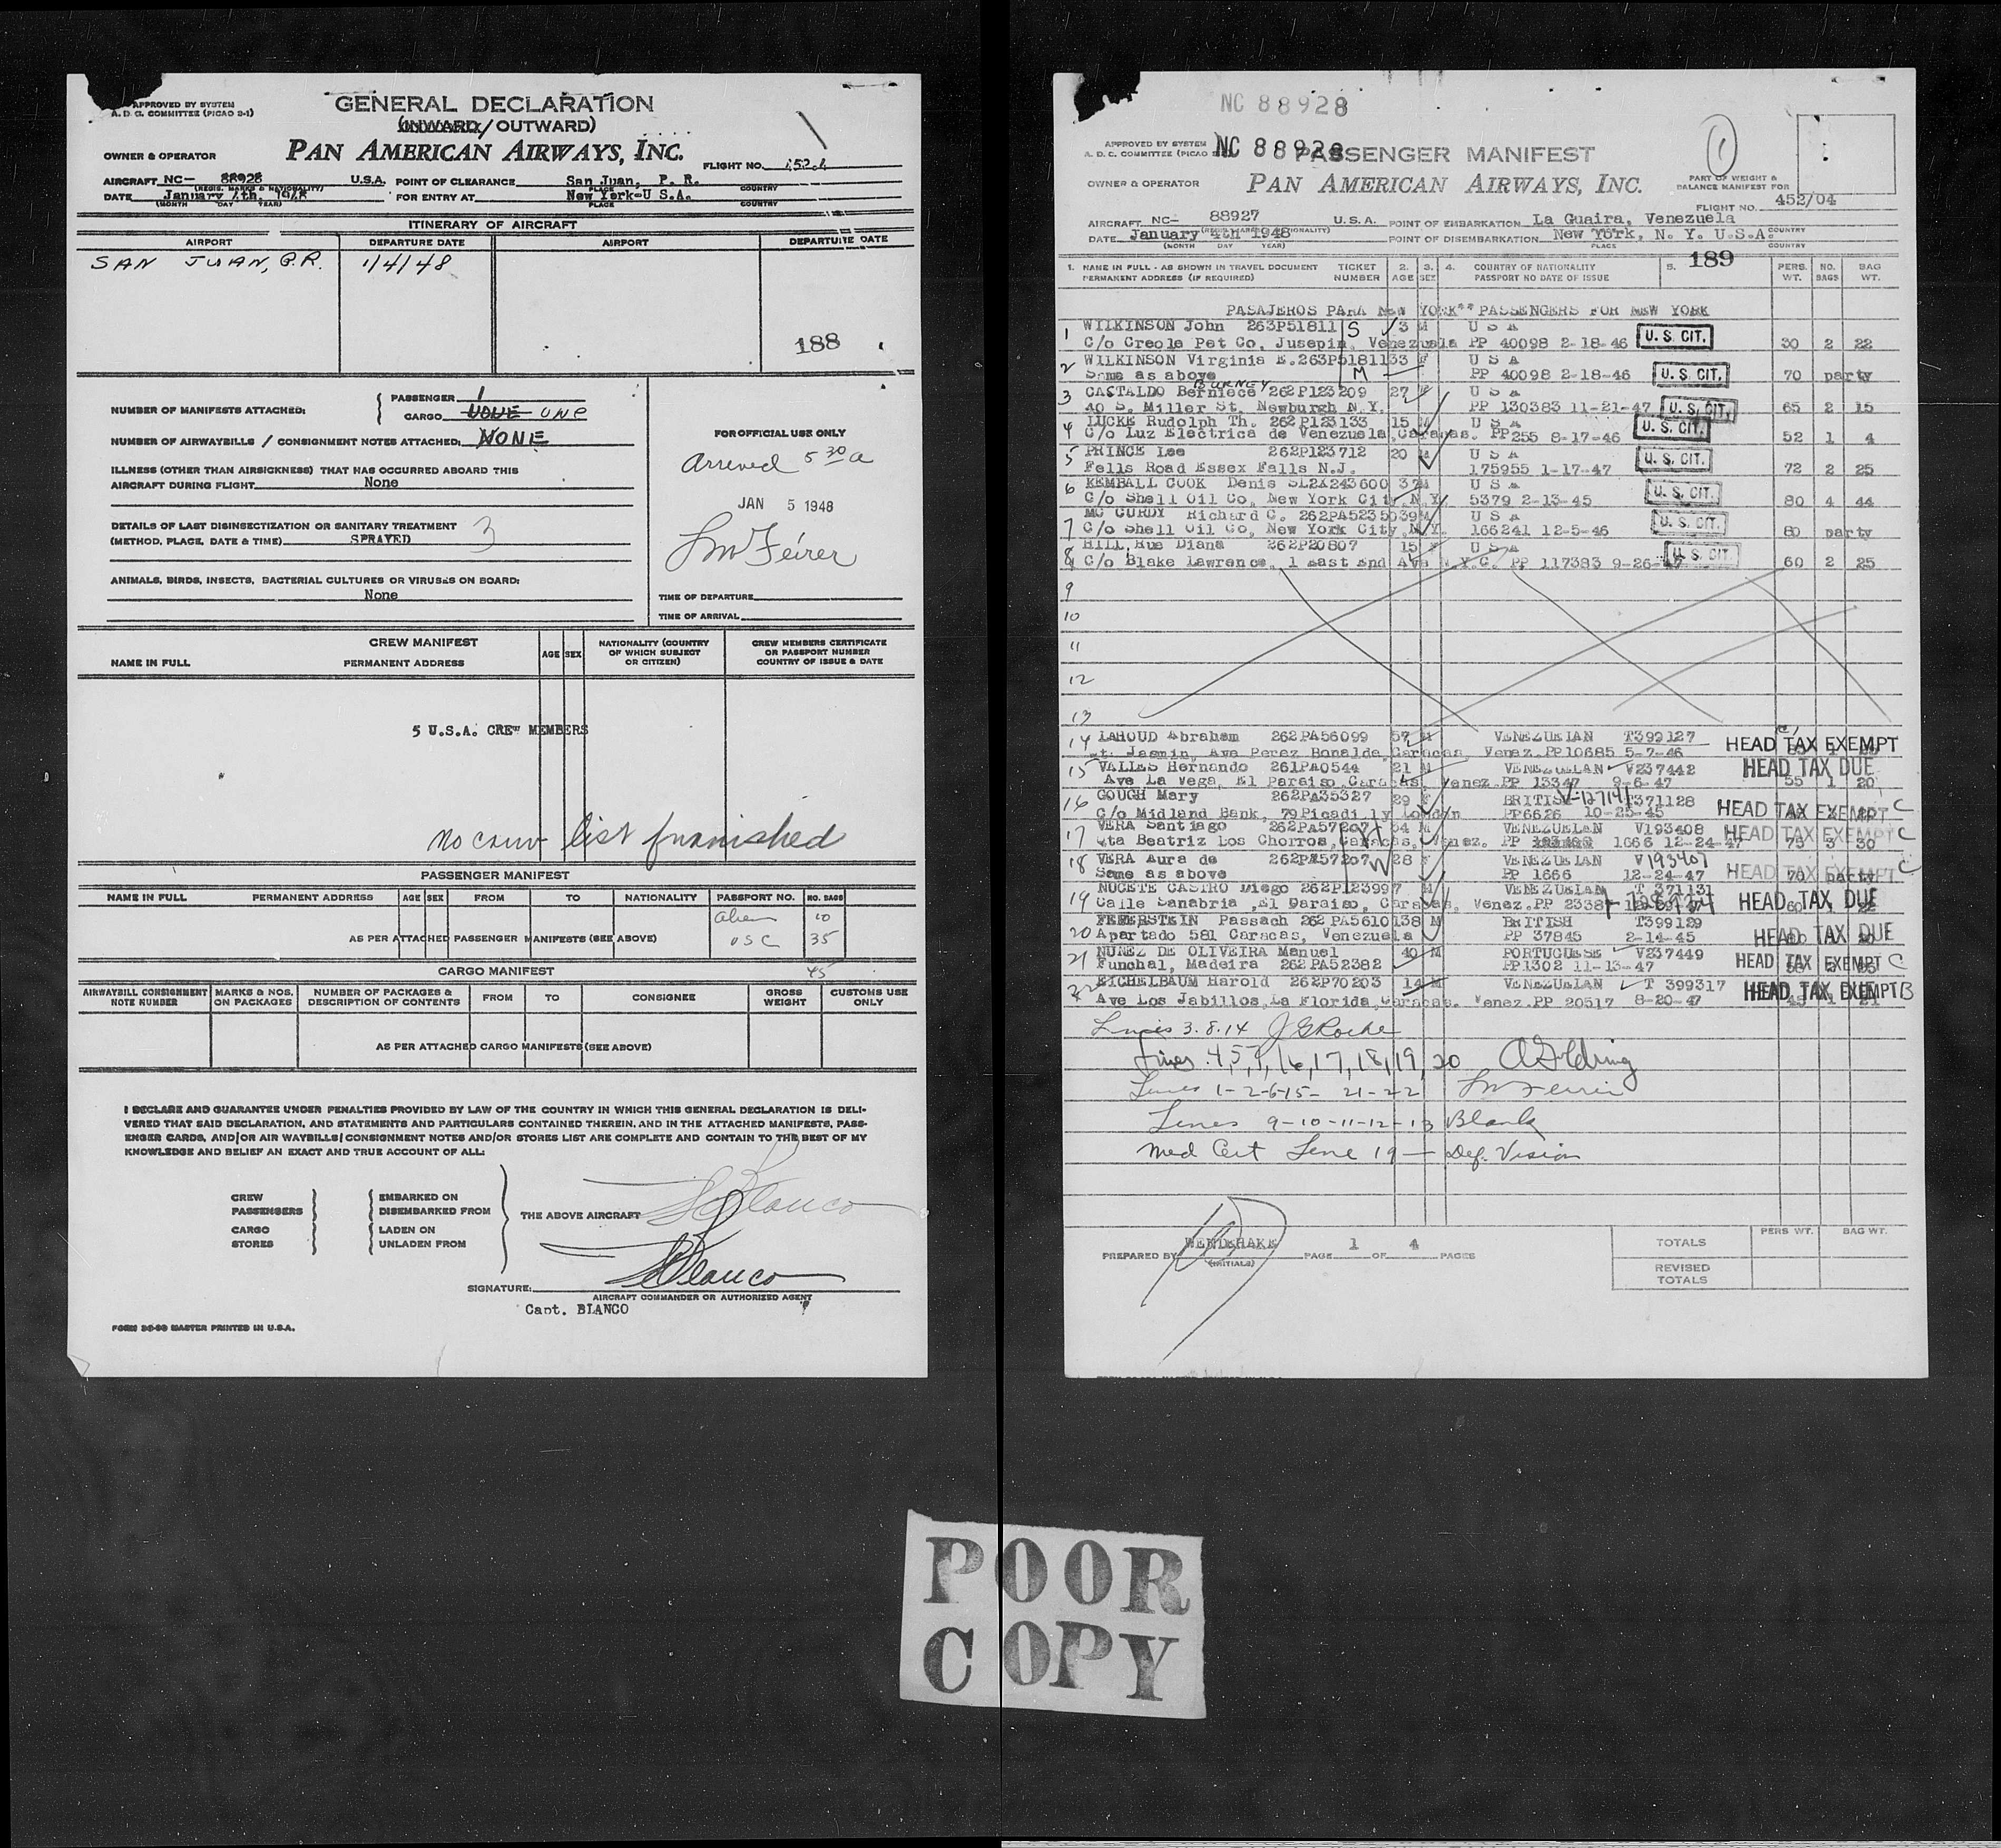 APPROVED BY SYSTEM
A. D. C. COMMITTEE (PICAO 2-1)
GENERAL DECLARATION
(INWARD/OUTWARD)
OWNER & OPERATOR
PAN AMERICAN AIRWAYS, INC.
FLIGHT NO.
AIRCRAFT NC- 88928 U.S.A. POINT OF CLEARANCE San Juan, P. R.
(REGIS. MARKS & NATIONALITY) PLACE COUNTRY
DATE January 4th, 1948 FOR ENTRY AT New York-U S.A.
(MONTH DAY YEAR) PLACE COUNTRY
ITINERARY OF AIRCRAFT
AIRPORT DEPARTURE DATE AIRPORT DEPARTURE DATE
SAN JUAN, P.R. 1/4/48
188
NUMBER OF MANIFESTS ATTACHED:
PASSENGER 1
CARGO NONE ONE
NUMBER OF AIRWAYBILLS / CONSIGNMENT NOTES ATTACHED: NONE
ILLNESS (OTHER THAN AIRSICKNESS) THAT HAS OCCURRED ABOARD THIS
AIRCRAFT DURING FLIGHT None
DETAILS OF LAST DISINSECTIZATION OR SANITARY TREATMENT
(METHOD, PLACE, DATE & TIME) SPRAYED 3
ANIMALS, BIRDS, INSECTS, BACTERIAL CULTURES OR VIRUSES ON BOARD:
None
FOR OFFICIAL USE ONLY
Arrived 5 30 a
JAN 5 1948
TIME OF DEPARTURE
TIME OF ARRIVAL
CREW MANIFEST
NAME IN FULL PERMANENT ADDRESS AGE SEX NATIONALITY (COUNTRY OF WHICH SUBJECT OR CITIZEN) CREW MEMBERS CERTIFICATE OR PASSPORT NUMBER COUNTRY OF ISSUE & DATE
5 U.S.A. CREW MEMBERS
No crew list furnished
PASSENGER MANIFEST
NAME IN FULL PERMANENT ADDRESS AGE SEX FROM TO NATIONALITY PASSPORT NO. NO. BAGS
alien 10
AS PER ATTACHED PASSENGER MANIFESTS (SEE ABOVE) USC 35
45
CARGO MANIFEST
AIRWAYBILL CONSIGNMENT NOTE NUMBER MARKS & NOS. ON PACKAGES NUMBER OF PACKAGES & DESCRIPTION OF CONTENTS FROM TO CONSIGNEE GROSS WEIGHT CUSTOMS USE ONLY
AS PER ATTACHED CARGO MANIFESTS (SEE ABOVE)
I DECLARE AND GUARANTEE UNDER PENALTIES PROVIDED BY LAW OF THE COUNTRY IN WHICH THIS GENERAL DECLARATION IS DELI-
VERED THAT SAID DECLARATION, AND STATEMENTS AND PARTICULARS CONTAINED THEREIN, AND IN THE ATTACHED MANIFESTS, PASS-
ENGER CARDS, AND/OR AIR WAYBILLS/CONSIGNMENT NOTES AND/OR STORES LIST ARE COMPLETE AND CONTAIN TO THE BEST OF MY
KNOWLEDGE AND BELIEF AN EXACT AND TRUE ACCOUNT OF ALL:
CREW EMBARKED ON
PASSENGERS DISEMBARKED FROM
THE ABOVE AIRCRAFT Blanco
CARGO LADEN ON
STORES UNLADEN FROM
SIGNATURE: Blanco
AIRCRAFT COMMANDER OR AUTHORIZED AGENT
Capt. BLANCO
FORM 30-00 MASTER PRINTED IN U.S.A.
NC 88928
APPROVED BY SYSTEM
A. D. C. COMMITTEE (PICAO
NC 88928
PASSENGER MANIFEST
1
OWNER & OPERATOR
PAN AMERICAN AIRWAYS, INC.
PART OF WEIGHT &
BALANCE MANIFEST FOR
FLIGHT NO. 452/04
AIRCRAFT NC- 88927 U.S.A. POINT OF EMBARKATION La Guaira, Venezuela
DATE January 4th 1948 POINT OF DISEMBARKATION New York, N. Y. U.S.A.
(MONTH DAY YEAR) PLACE COUNTRY
189
1. NAME IN FULL - AS SHOWN IN TRAVEL DOCUMENT TICKET 2. 3. 4. COUNTRY OF NATIONALITY 5. PERS. NO. BAG
PERMANENT ADDRESS (IF REQUIRED) NUMBER AGE SEX PASSPORT NO DATE OF ISSUE WT. BAGS WT.
PASAJEROS PARA NEW YORK** PASSENGERS FOR NEW YORK
1 WILKINSON John 263P51811 S 3 M U S A U. S. CIT.
C/o Creole Pet Co, Jusepin, Venezuela PP 40098 2-18-46 30 2 22
2 WILKINSON Virginia E. 263P51811 33 F U S A
Same as above M PP 40098 2-18-46 U. S. CIT. 70 party
BURNEY
3 CASTALDO Berniece 262P123209 27 F U S A
40 S. Miller St, Newburgh N.Y. PP 130383 11-21-47 U. S. CIT. 65 2 15
4 LUCKE Rudolph Th. 262P123133 15 M U S A U. S. CIT.
C/o Luz Electrica de Venezuela, Caracas. PP 255 8-17-46 52 1 4
5 PRINCE Lee 262P123712 20 M U S A U. S. CIT.
Fells Road Essex Falls N.J. 175955 1-17-47 72 2 25
6 KEMBALL COOK Denis SL2X243600 37 M U S A U. S. CIT.
C/o Shell Oil Co, New York City, N.Y. 5379 2-13-45 80 4 44
7 MC CURDY Richard C. 262PA52350 39 M U S A U. S. CIT.
C/o Shell Oil Co, New York City, N.Y. 166241 12-5-46 80 party
8 HILL, Rue Diana 262P20807 15 F U S A U. S. CIT.
C/o Blake Lawrence, 1 East End Ave N.Y.C. PP 117383 9-26-47 60 2 25
9
10
11
12
13
14 LAHOUD Abraham 262PA56099 57 M VENEZUELAN T399127 HEAD TAX EXEMPT
Jasmin, Ave Perez Bonalde, Caracas Venez. PP 10685 5-7-46
15 VALLES Hernando 261PA0544 21 M VENEZUELAN V237442 HEAD TAX DUE
Ave La Vega, El Paraiso, Caracas, Venez. PP 13347 9-6-47 55 1 20
16 GOUGH Mary 262PA35327 29 F BRITISH T371128 HEAD TAX EXEMPT C
C/o Midland Bank, 79 Picadilly London PP6626 10-25-45
17 VERA Santiago 262PA57207 34 M VENEZUELAN V193408 HEAD TAX EXEMPT C
Qta Beatriz Los Chorros, Caracas, Venez. PP 1666 12-24-47 75 3 30
18 VERA Aura de 262PA57207 28 F VENEZUELAN V193407
Same as above PP 1666 12-24-47 HEAD TAX EXEMPT C 70 party
19 NUCETE CASTRO Diego 262P123997 M VENEZUELAN T 371131
Calle Sanabria, El Paraiso, Caracas, Venez. PP 2338 HEAD TAX DUE
20 FEFERSTEIN Passach 262PA56101 38 M BRITISH T399129
Apartado 581 Caracas, Venezuela PP 37845 2-14-45 HEAD TAX DUE
21 NUNEZ DE OLIVEIRA Manuel 40 M PORTUGUESE V237449
Funchal, Madeira 262PA52382 PP1302 11-13-47 HEAD TAX EXEMPT C
22 EICHELBAUM Harold 262P70203 14 M VENEZUELAN T 399317
Ave Los Jabillos, La Florida, Caracas. Venez. PP 20517 8-20-47 HEAD TAX EXEMPT B
Lines 3. 8. 14 J G Roche
Lines 4, 5, 7, 16, 17, 18, 19, 20
Lines 1-2-6-15- 21-22
Lines 9-10-11-12-13 Blank
Med Cert Line 19 - Def. Vision
PREPARED BY WENDEHAKE PAGE 1 OF 4 PAGES
(INITIALS)
PERS WT. BAG WT.
TOTALS
REVISED
TOTALS
POOR
COPY